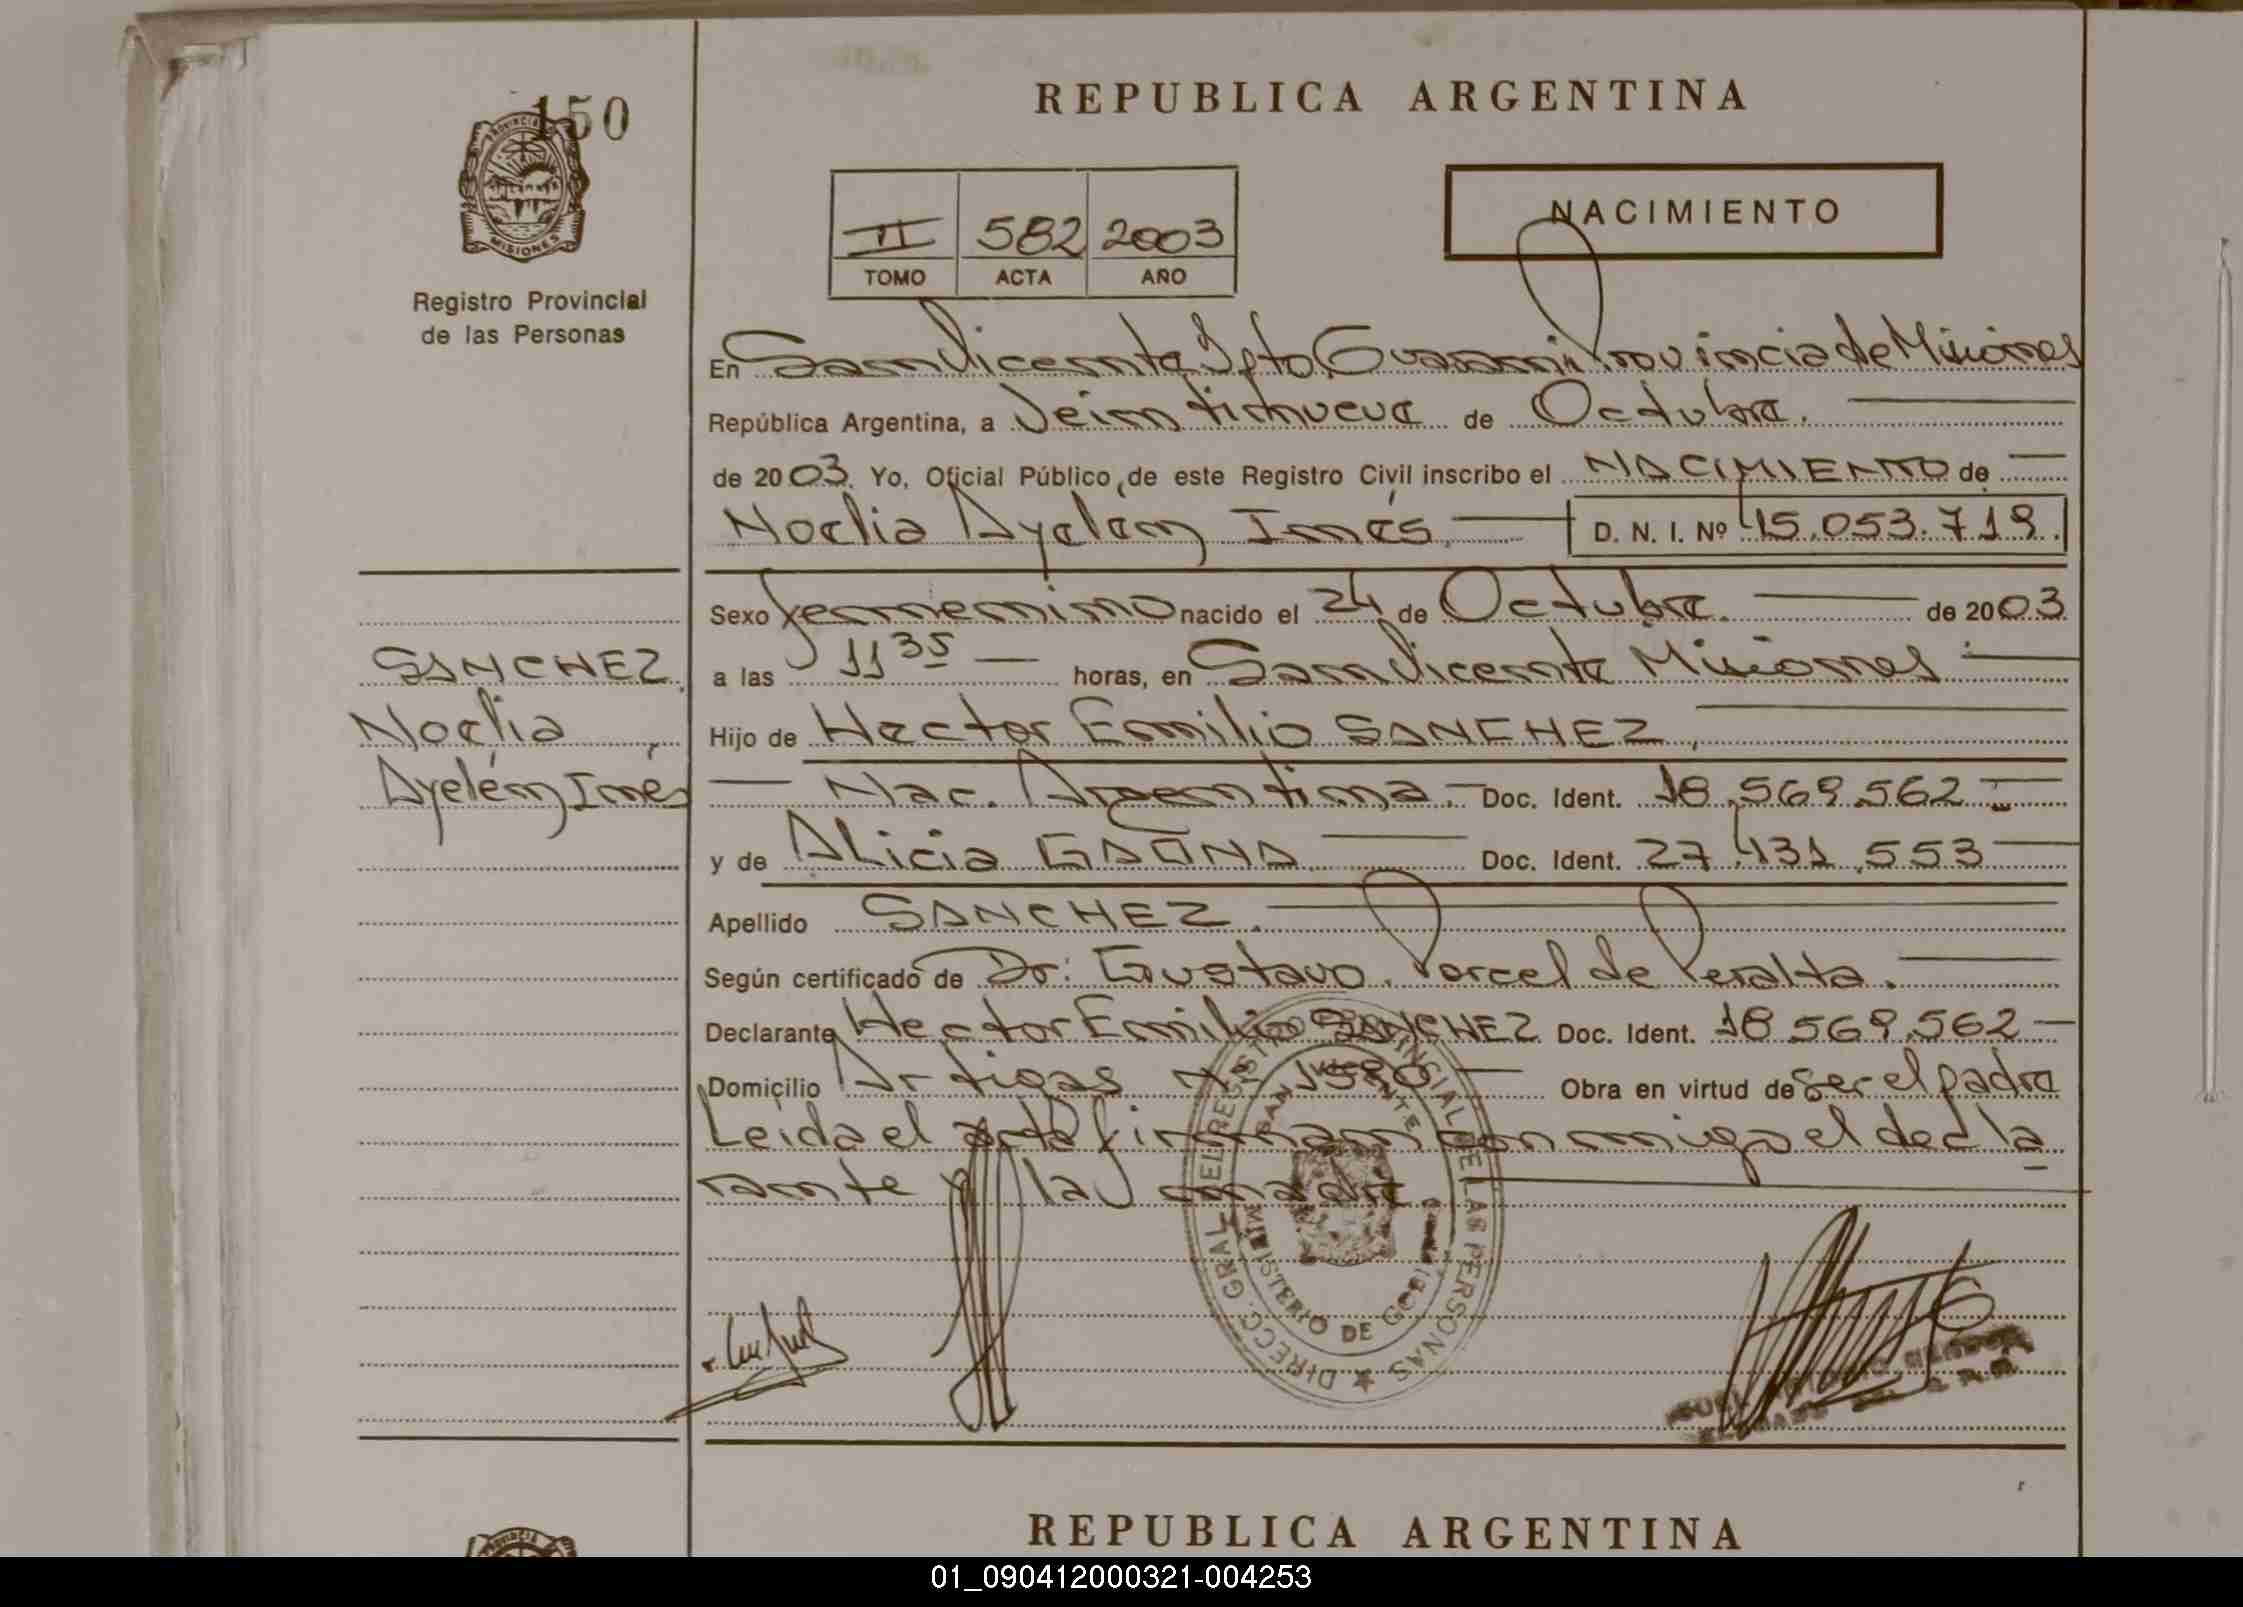 150
PROVINCIA
MISIONES
Registro Provincial
de las Personas
REPUBLICA ARGENTINA
NACIMIENTO
II 582 2003
TOMO ACTA AÑO
En San Vicente Dpto Guaraní Provincia de Misiones
República Argentina, a Veintinueve de Octubre.
de 2003. Yo, Oficial Público, de este Registro Civil inscribo el NACIMIENTO de
Noelia Ayelén Inés D. N. I. Nº 45.053.719.
Sexo femenino nacido el 24 de Octubre. de 2003.
a las 11 35 horas, en San Vicente Misiones
Hijo de Hector Emilio SANCHEZ,
Nac. Argentina. Doc. Ident. 18.569.562
y de Alicia GAONA Doc. Ident. 27.431.553
Apellido SANCHEZ.
Según certificado de Dr: Gustavo. Porcel de Peralta.
Declarante Hector Emilio SANCHEZ Doc. Ident. 18.569.562
Domicilio Artigas Nº 1580 Obra en virtud de ser el padre
Leida el acta firman conmigo el decla
rante y la madre.
SANCHEZ,
Noelia
Ayelén Inés
DIRECC. GRAL. DEL REGISTRO PROVINCIAL DE LAS PERSONAS
SAN VICENTE
MINISTERIO DE GOBIERNO
REPUBLICA ARGENTINA
PROVINCIA
01_090412000321-004253